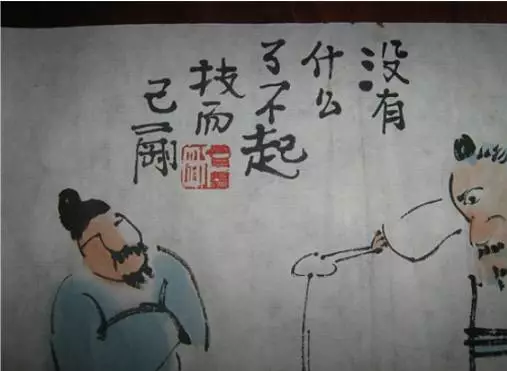 没有
什么
了不起
技而
已剛